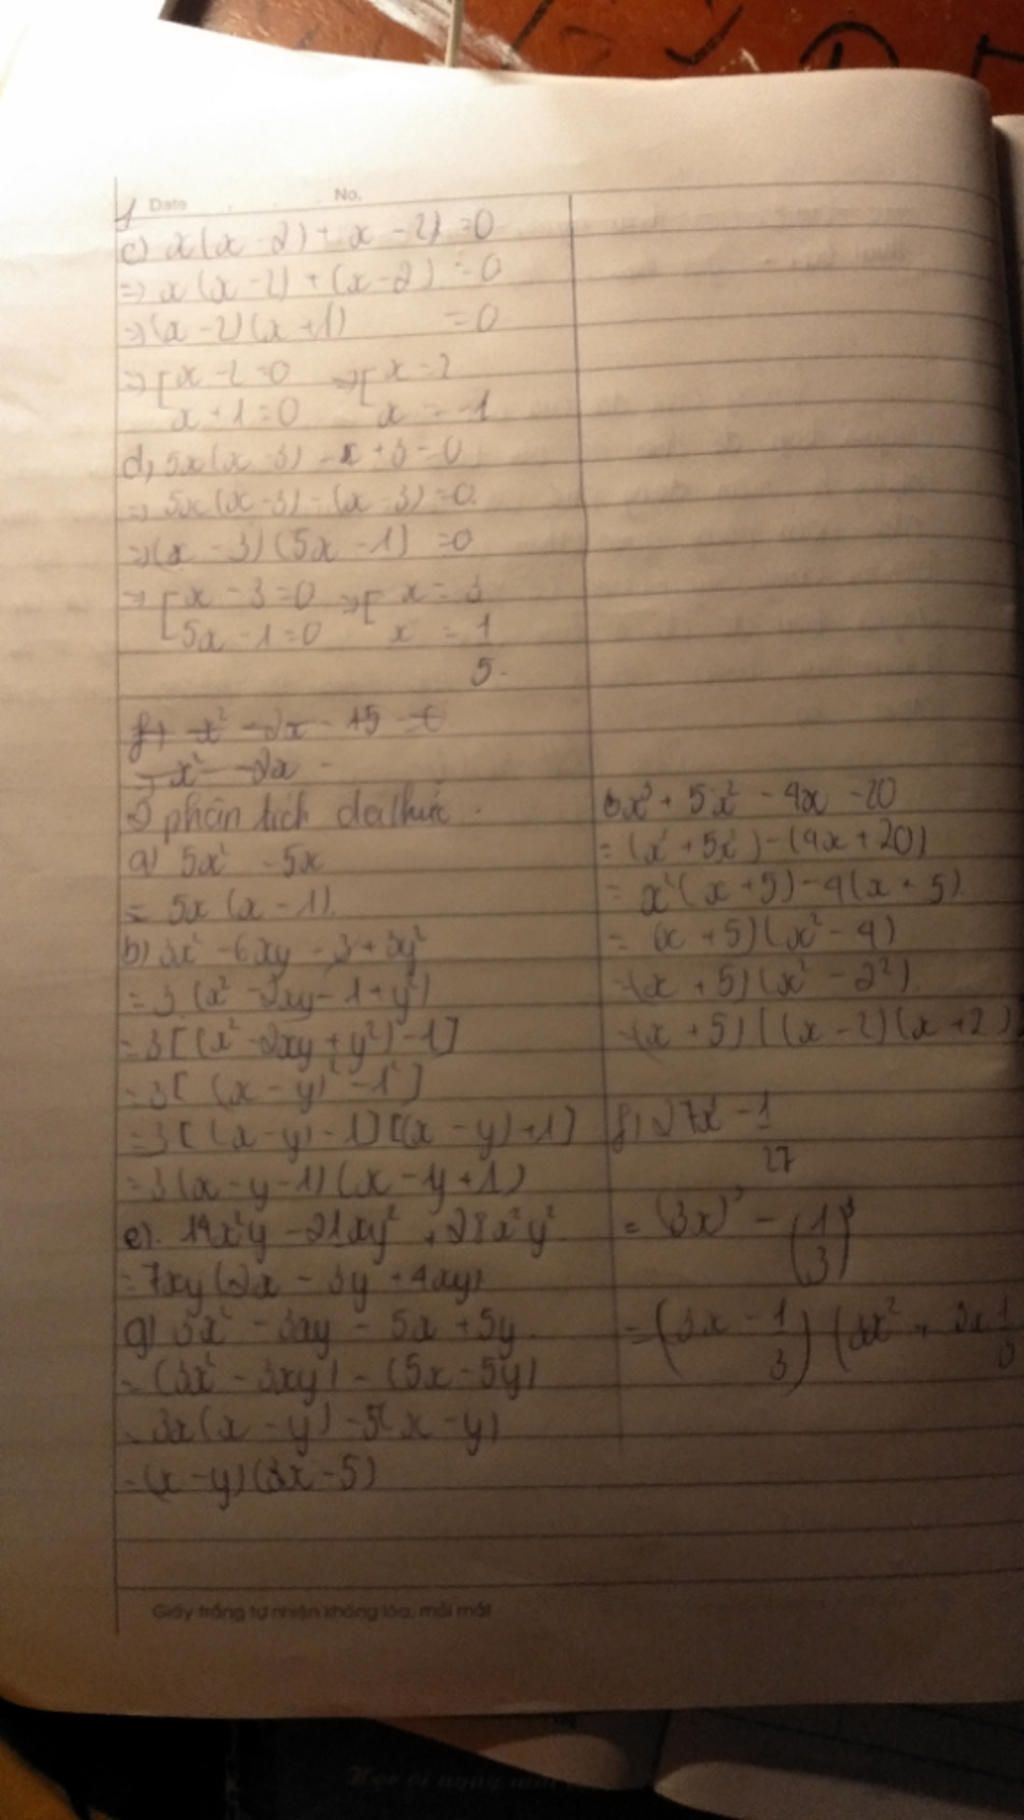 Date No.
c) x(x-2) + x - 2 = 0
=> x(x-2) + (x-2) = 0
=> (x-2)(x+1) = 0
=> [x-2=0 => [x=2
x+1=0 x=-1
d) 5x(x-3) - x + 3 = 0
=> 5x(x-3) - (x-3) = 0
=> (x-3)(5x-1) = 0
=> [x-3=0 => [x=3
5x-1=0 x = 1
5.
phân tích đa thức
a) 5x² - 5x
= 5x(x-1)
b) 3x² - 6xy - 3 + 3y²
= 3(x² - 2xy - 1 + y²)
= 3[(x² - 2xy + y²) - 1]
= 3[(x-y)² - 1²]
= 3[(x-y) - 1][(x-y) + 1]
= 3(x-y-1)(x-y+1)
e) 14x²y - 21xy² + 28x²y²
= 7xy(2x - 3y + 4xy)
g) 3x² - 3xy - 5x + 5y
= (3x² - 3xy) - (5x - 5y)
= 3x(x-y) - 5(x-y)
= (x-y)(3x-5)
x³ + 5x² - 4x - 20
= (x³ + 5x²) - (4x + 20)
= x²(x+5) - 4(x+5)
= (x+5)(x² - 4)
= (x+5)(x² - 2²)
= (x+5)[(x-2)(x+2)
f) 27x³ - 1
27
= (3x)³ - (1
3)³
= (3x - 1
3)
Giấy trắng tự nhiên không lóa, mỏi mắt